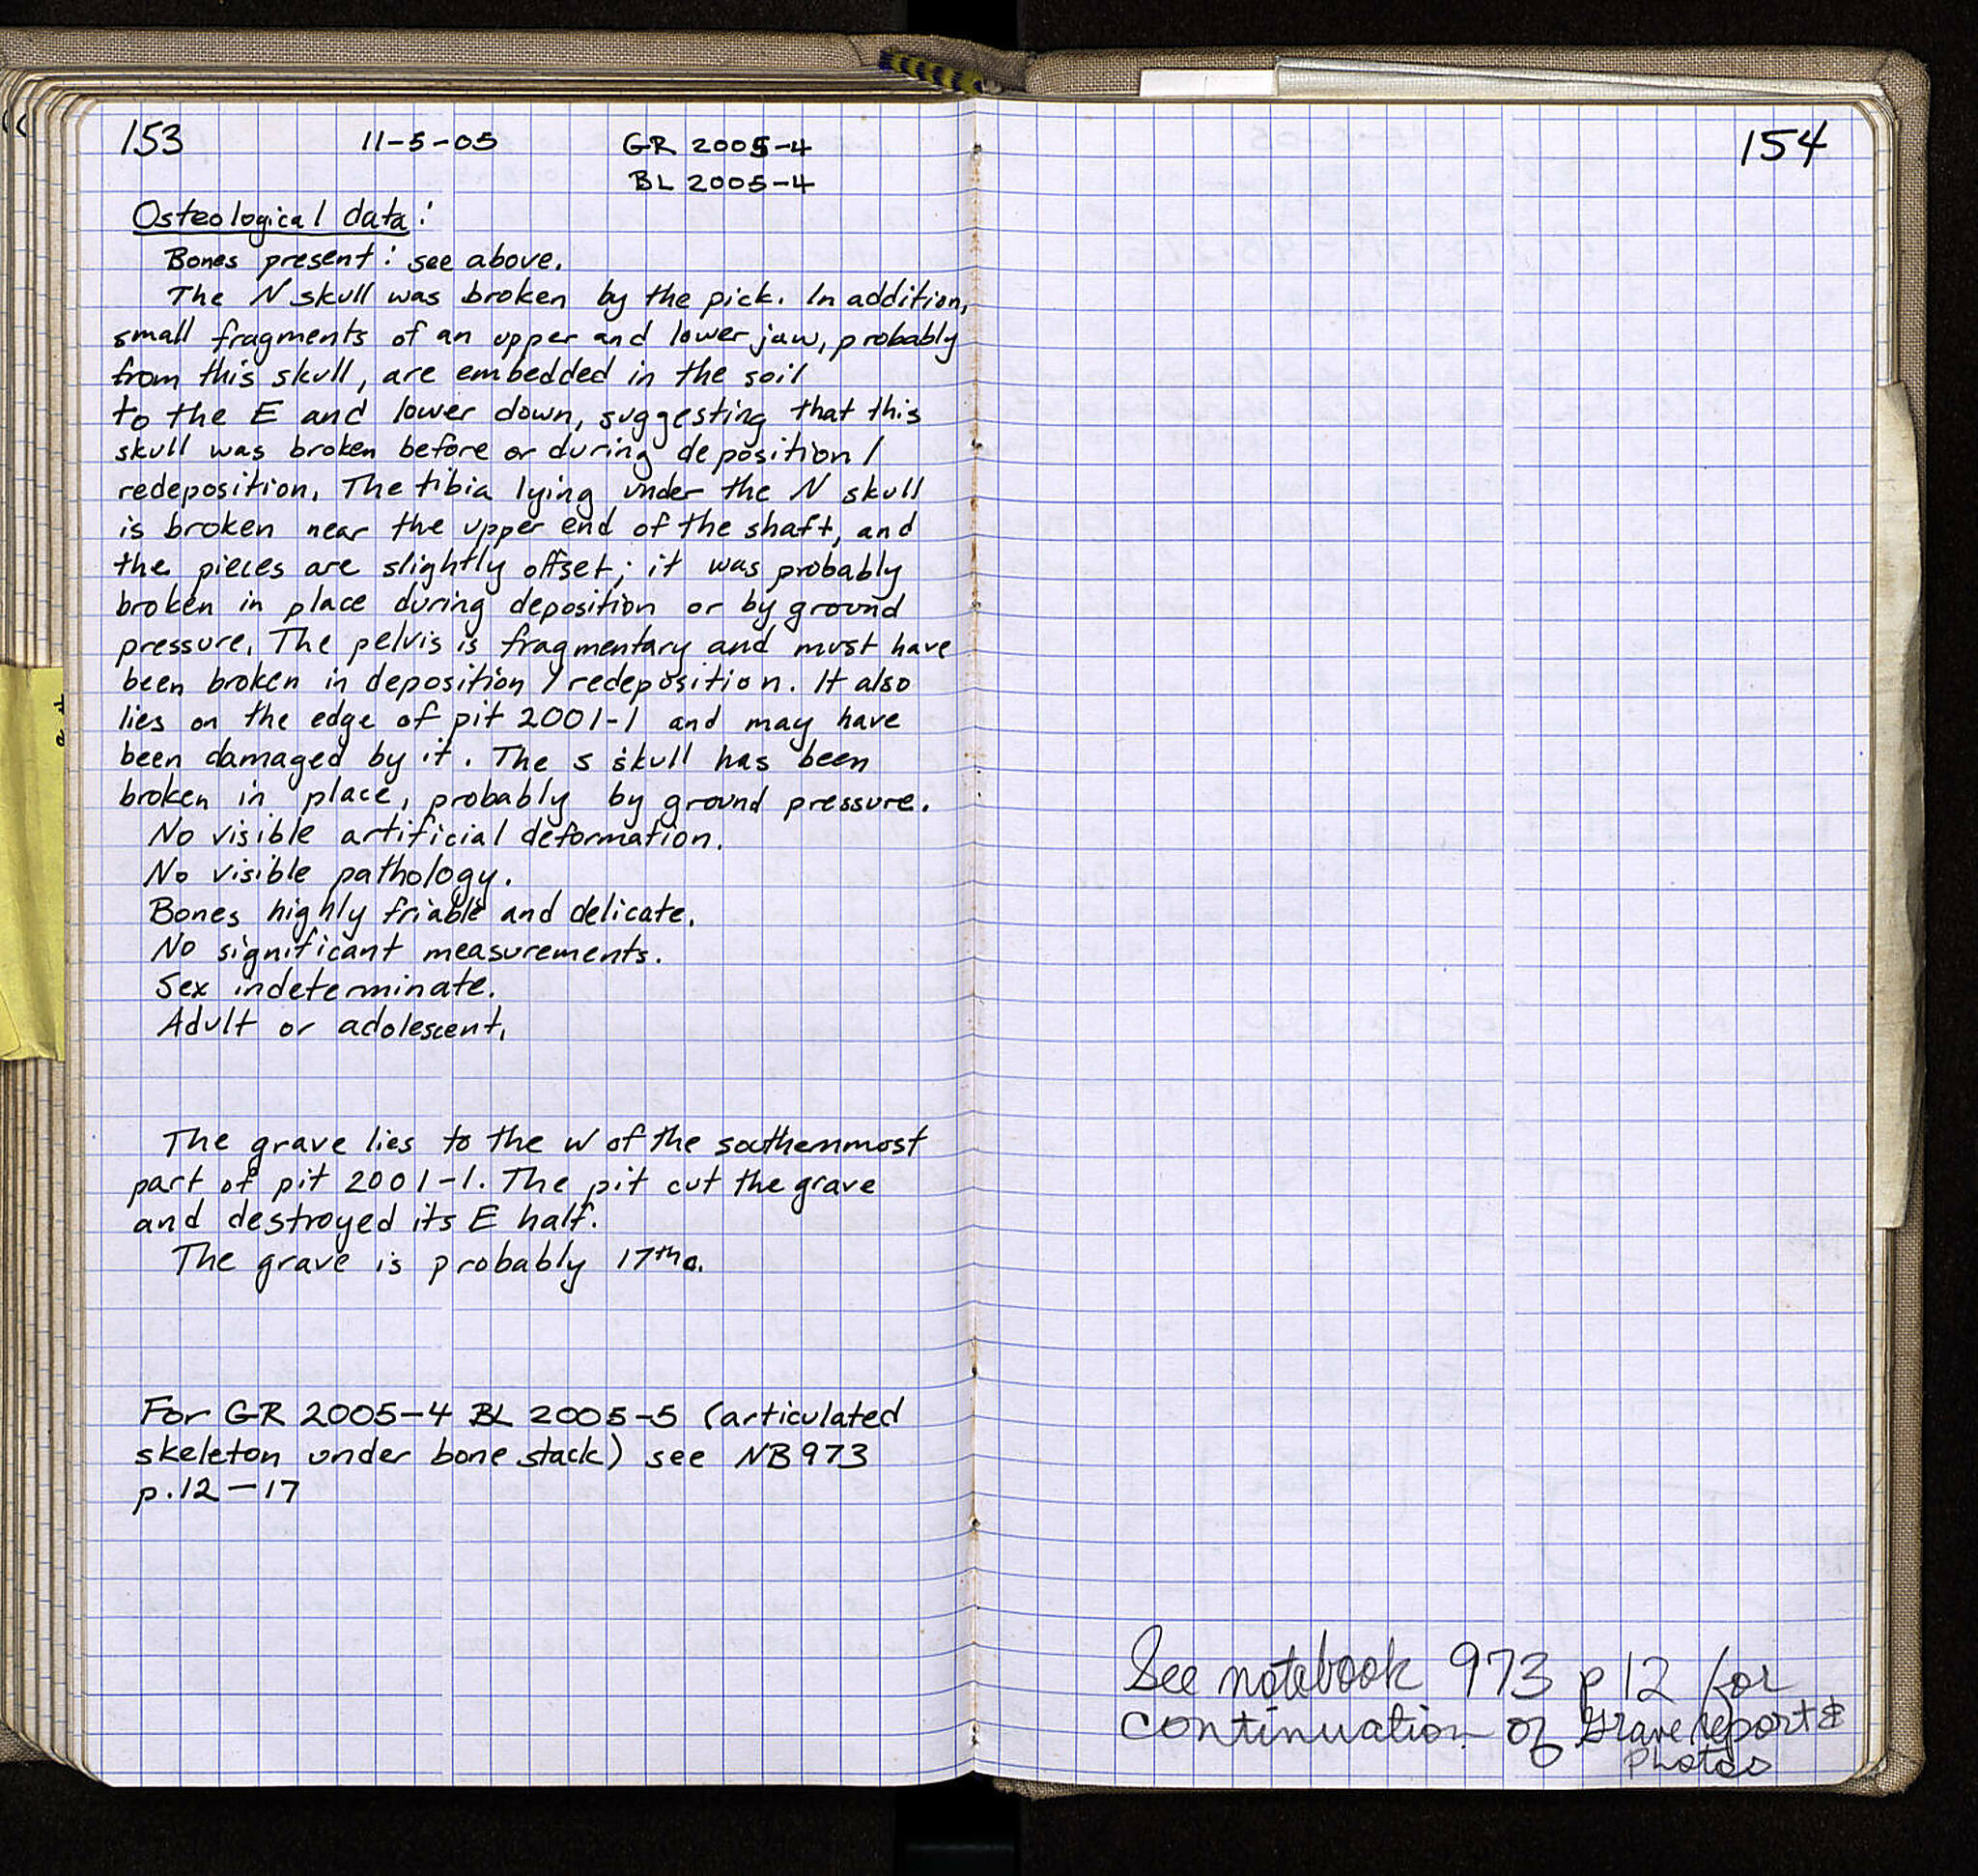 153 11-5-05 GR 2005-4
BL 2005-4
Osteological data:
Bones present: see above.
The N skull was broken by the pick. In addition,
small fragments of an upper and lower jaw, probably
from this skull, are embedded in the soil
to the E and lower down, suggesting that this
skull was broken before or during deposition/
redeposition. The tibia lying under the N skull
is broken near the upper end of the shaft, and
the pieces are slightly offset; it was probably
broken in place during deposition or by ground
pressure. The pelvis is fragmentary and must have
been broken in deposition/redeposition. It also
lies on the edge of pit 2001-1 and may have
been damaged by it. The S skull has been
broken in place, probably by ground pressure.
No visible artificial deformation.
No visible pathology.
Bones highly friable and delicate.
No significant measurements.
Sex indeterminate.
Adult or adolescent.
The grave lies to the W of the southernmost
part of pit 2001-1. The pit cut the grave
and destroyed its E half.
The grave is probably 17th c.
For GR 2005-4 BL 2005-5 (articulated
skeleton under bone stack) see NB 973
p.12-17
154
See notebook 973 p 12 for
continuation of Grave report &
Photos